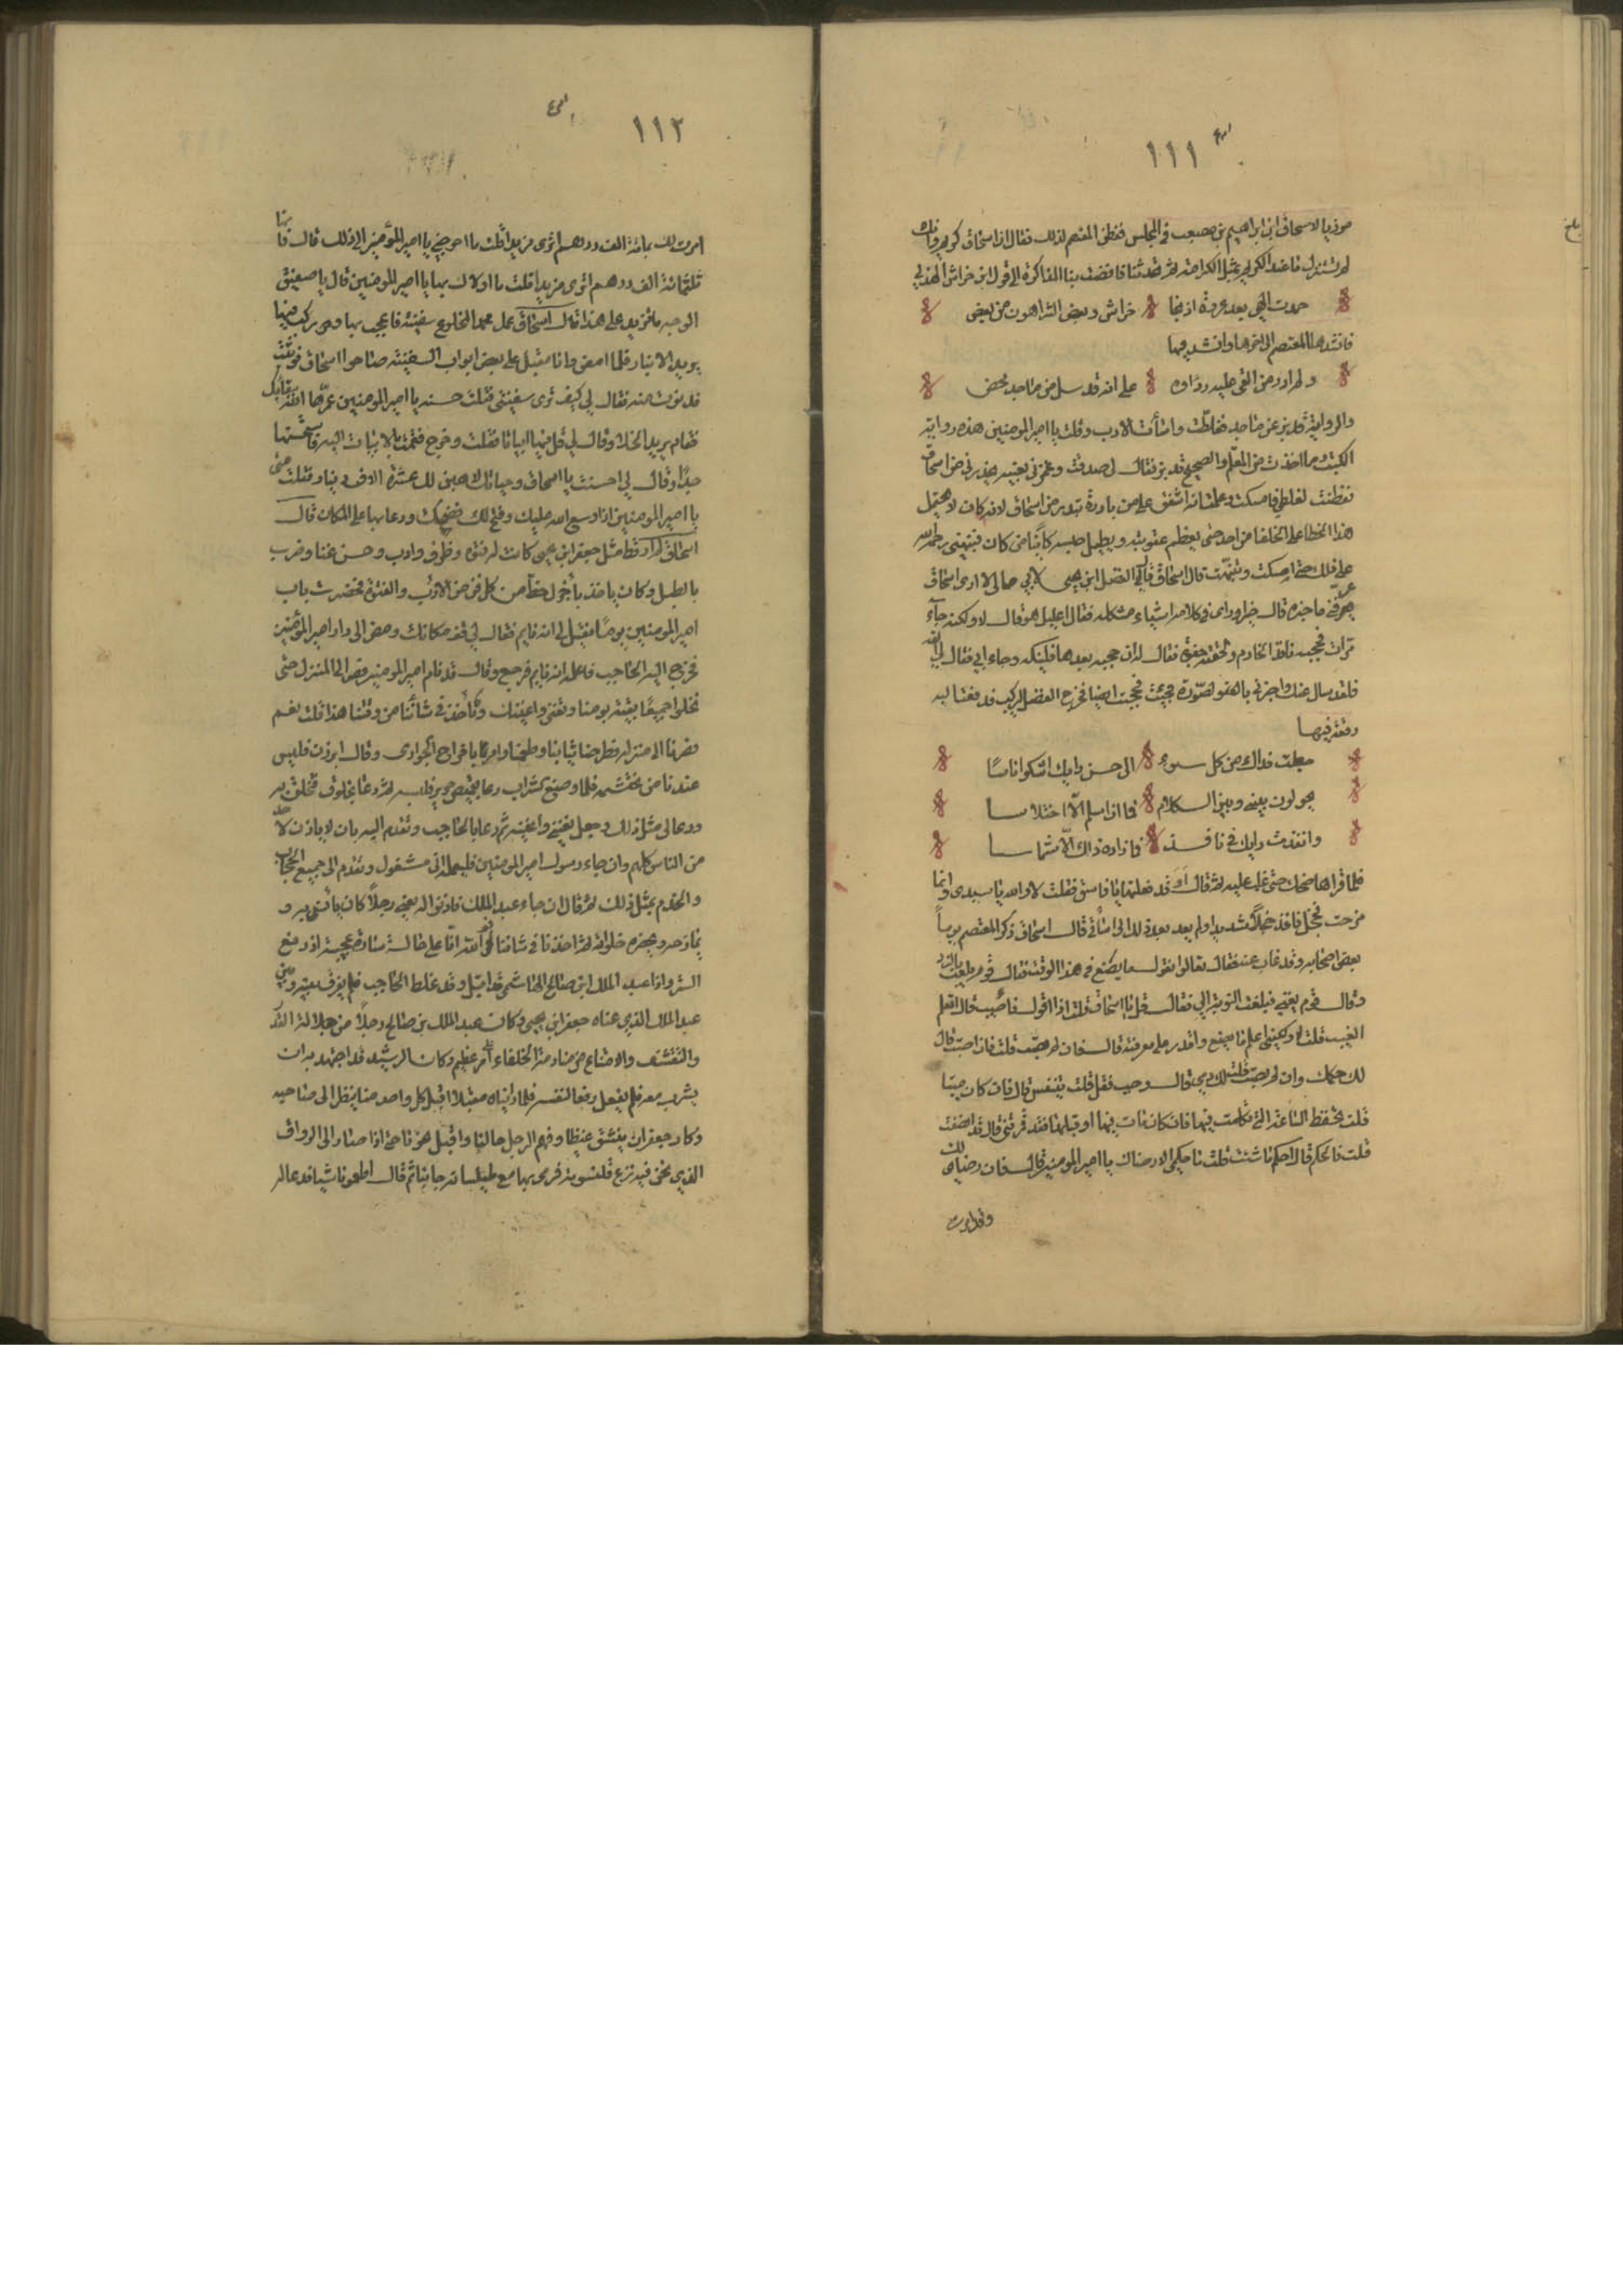 ١١١
موذيا لاسحاق ابن ابراهيم بن مصعب في المجلس ففطن المعتصم لذلك فقال ان اسحاق كريم وانك
لم تستنزل ما عند الكريم بمثل اكرامه ثم تحدثنا فافضت بنا المذاكرة الى قول ابن خراش الهذلي
حمدت الهي بعد عروة اذ نجا خراش وبعض الشر اهون من بعض
فانشدها المعتصم الى اخرها وانشد فيها
ولم ادر من القى عليه رداه على انه قد سل من ماجد محض
والرواية قد بز عن ماجد فغلطت واسأت الادب وقلت يا امير المومنين هذه رواية
الكتب وما اخذت من المعلم والصحيح قد بز فقال لي صدقت وغمزني بعينه يحذرني من اسحاق
ففطنت لغلطي فامسكت وعلمت انه اشفق على من بادرة تبدر من اسحاق لانه كان لا يحتمل
هذا الخطا على الخلفا من احد حتى يعظم عقوبته ويطيل حبسه كائنا من كان فنبهني رحمه الله
على ذلك حتى امسكت وتنبهت قال اسحاق قال الفضل ابن يحيى لابي ما لي لا ارى اسحاق
عرفني ما خبره قال خير وراى في كلامه اشياء مشكله فقال اعليل هو قال لا ولكنه جاء
مرات فحجبه نافذ الخادم ولحقته جفوة فقال له ان حجبه بعدها فلينكه وجاء ابي فقال لي القه
فلقد سال عنك واخبرني بالقصة فجيت فحجبت ايضا فخرج الفضل ليركب فدفعت اليه
رقعة فيها
جعلت فداك من كل سوء الى حسن رايك اشكو اناسا
يحولون بيني وبين السلام فما ان اسلم الا اختلاسا
وانفذت رايك في نافذ فما زاده ذاك الا شماسا
فلما قراها ضحك حتى غلب عليه ثم قال او قد فعلتها يا فاسق فقلت لا والله يا سيدي وانما
مزحت فخجل نافذ خجلا شديدا ولم يعد بعد ذلك الى مسأتي قال اسحاق ذكر المعتصم يوما
بعض اصحابه وقد غاب عنه فقال تعالوا نقول ما يصنع في هذا الوقت فقال قوم يلعب بالنرد
وقال قوم يغني فبلغت النوبة الي فقال قل يا اسحاق قلت اذا اقول فاصيب قال اتعلم
الغيب قلت لا ولكنني اعلم ما يصنع واقدر على معرفته قال فان لم تصب قلت فان اصبت قال
لك حكمك وان لم تصب قلت لك دمي قال وجب فقل قلت يتنفس قال فان كان ميتا
قلت تحفظ الساعة التي تكلمت فيها فان كان مات فيها او قبلها فقد قمرتني قال قد انصفت
قلت فالحكم قال احكم ما شئت قلت ما حكمي الا رضاك يا امير المومنين قال فان رضاي لك
وقد امرت
١١٢
امرت لك بمائة الف درهم اترى مزيدا قلت ما احوجني يا امير المؤمنين الى ذلك قال فانها
ثلثمائة الف درهم اترى مزيدا قلت ما اولاك بها يا امير المومنين قال يا صفيق
الوجه ما نزيد على هذا قال اسحاق عمل محمد المخلوع سفينة فاعجب بها ومر يركب فيها
يريد الانبار فلما امعن وانا مقبل على بعض ابواب السفينة صاحوا اسحاق فوثبت
فدنوت منه فقال لي كيف ترى سفينتي فقلت حسنه يا امير المومنين عمرها الله ببقائك
فقام يريد الخلا وقال لي قل فيها ابياتا فقلت وخرج فقمت بالابيات اليه فاستحسنها
جدا وقال لي احسنت يا اسحاق وحياتك لاهبن لك عشرة الاف دينار فقلت متى
يا امير المومنين اذا وسع الله عليك وفتح لك فضحك ودعا بها على المكان قال
اسحاق لم ار قط مثل جعفر ابن يحيى كانت له فتوة وظرف وادب وحسن غنا وضرب
بالطبل وكان ياخذ باجزل حظ من كل فن من الادب والفتوة فحضرت باب
امير المومنين يوما فقيل لي انه نايم فقال لي قف مكانك ومضى الى دار امير المؤمنين
فخرج اليه الحاجب فاعلمه انه نايم فرجع وقال قد نام امير المومنين فصر الى المنزل حتى
نخلو جميعا بقية يومنا وتغني واغنيك ونأخذ في شأننا من وقتنا هذا قلت نعم
فصرنا الى منزله فطرحنا ثيابنا وطعمنا وامر باخراج الجوارى وقال ابرزن فليس
عندنا من نحتشمه فلما وضع الشراب دعا بقميص حرير فلبسه ثم دعا بخلوق فتخلق به
ودعا لي مثل ذلك وجعل يغنيني واغنيه ثم دعا بالحاجب وتقدم اليه بان لا ياذن لاحد
من الناس كلهم وان جاء رسول امير المومنين فليعلمه اني مشغول وتقدم الى جميع الحجاب
والخدم بمثل ذلك ثم قال ان جاء عبد الملك فاذنوا له يعني رجلا كان يأنس به و
يمازحه ويحضره خلواته ثم اخذنا في شاننا فوالله انا على حالة سارة عجيبة اذ رفع
الستر واذا عبد الملك ابن صالح الهاشمي قد اقبل وقد غلط الحاجب فلم يفرق بينه وبين
عبد الملك الذي عناه جعفر ابن يحيى وكان عبد الملك بن صالح رجلا من جلالة القدر
والتقشف والامتناع من منادمة الخلفاء امر عظيم وكان الرشيد قد اجتهد به ان
يشرب معه فلم يفعل رفعا لنفسه فلما رايناه مقبلا اقبل كل واحد منا ينظر الى صاحبه
وكاد جعفر ان ينشق غيظا وفهم الرجل حالنا واقبل نحونا حتى اذا صار الى الرواق
الذي نحن فيه نزع قلنسوته فرمى بها مع طيلسانه جانبا ثم قال اطعمونا شيا فدعا له